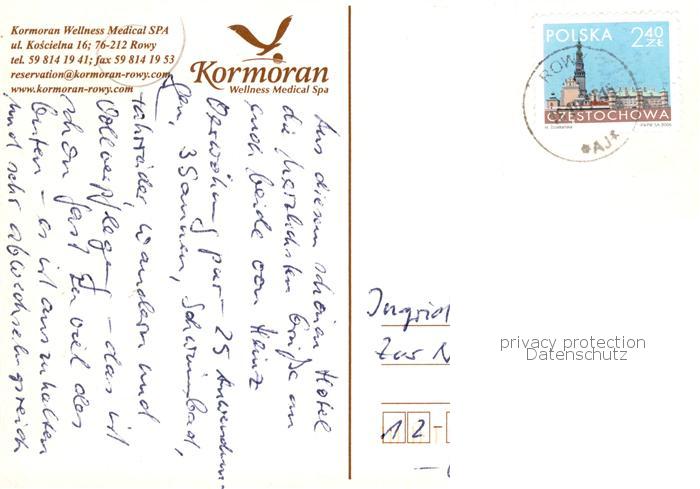 Kormoran Wellness Medical SPA
ul. Kościelna 16; 76-212 Rowy
tel. 59 814 19 41; fax 59 814 19 53
reservation@kormoran-rowy.com
www.kormoran-rowy.com
Kormoran
Wellness Medical Spa
POLSKA 2 40 ZŁ
CZĘSTOCHOWA
ROWY
Aus diesem schönen Hotel
die herzlichsten Grüße an
euch beide von Heinz
Verwöhnung pur - 25 Anwendun-
gen, 3 Saunen, Schwimmbad,
Fahrräder, wandern und
Vollverpflegung - das ist
schon fast zu viel des
Guten - es ist auszuhalten
und sehr abwechslungsreich
Ingrid
Zur
12-
privacy protection
Datenschutz